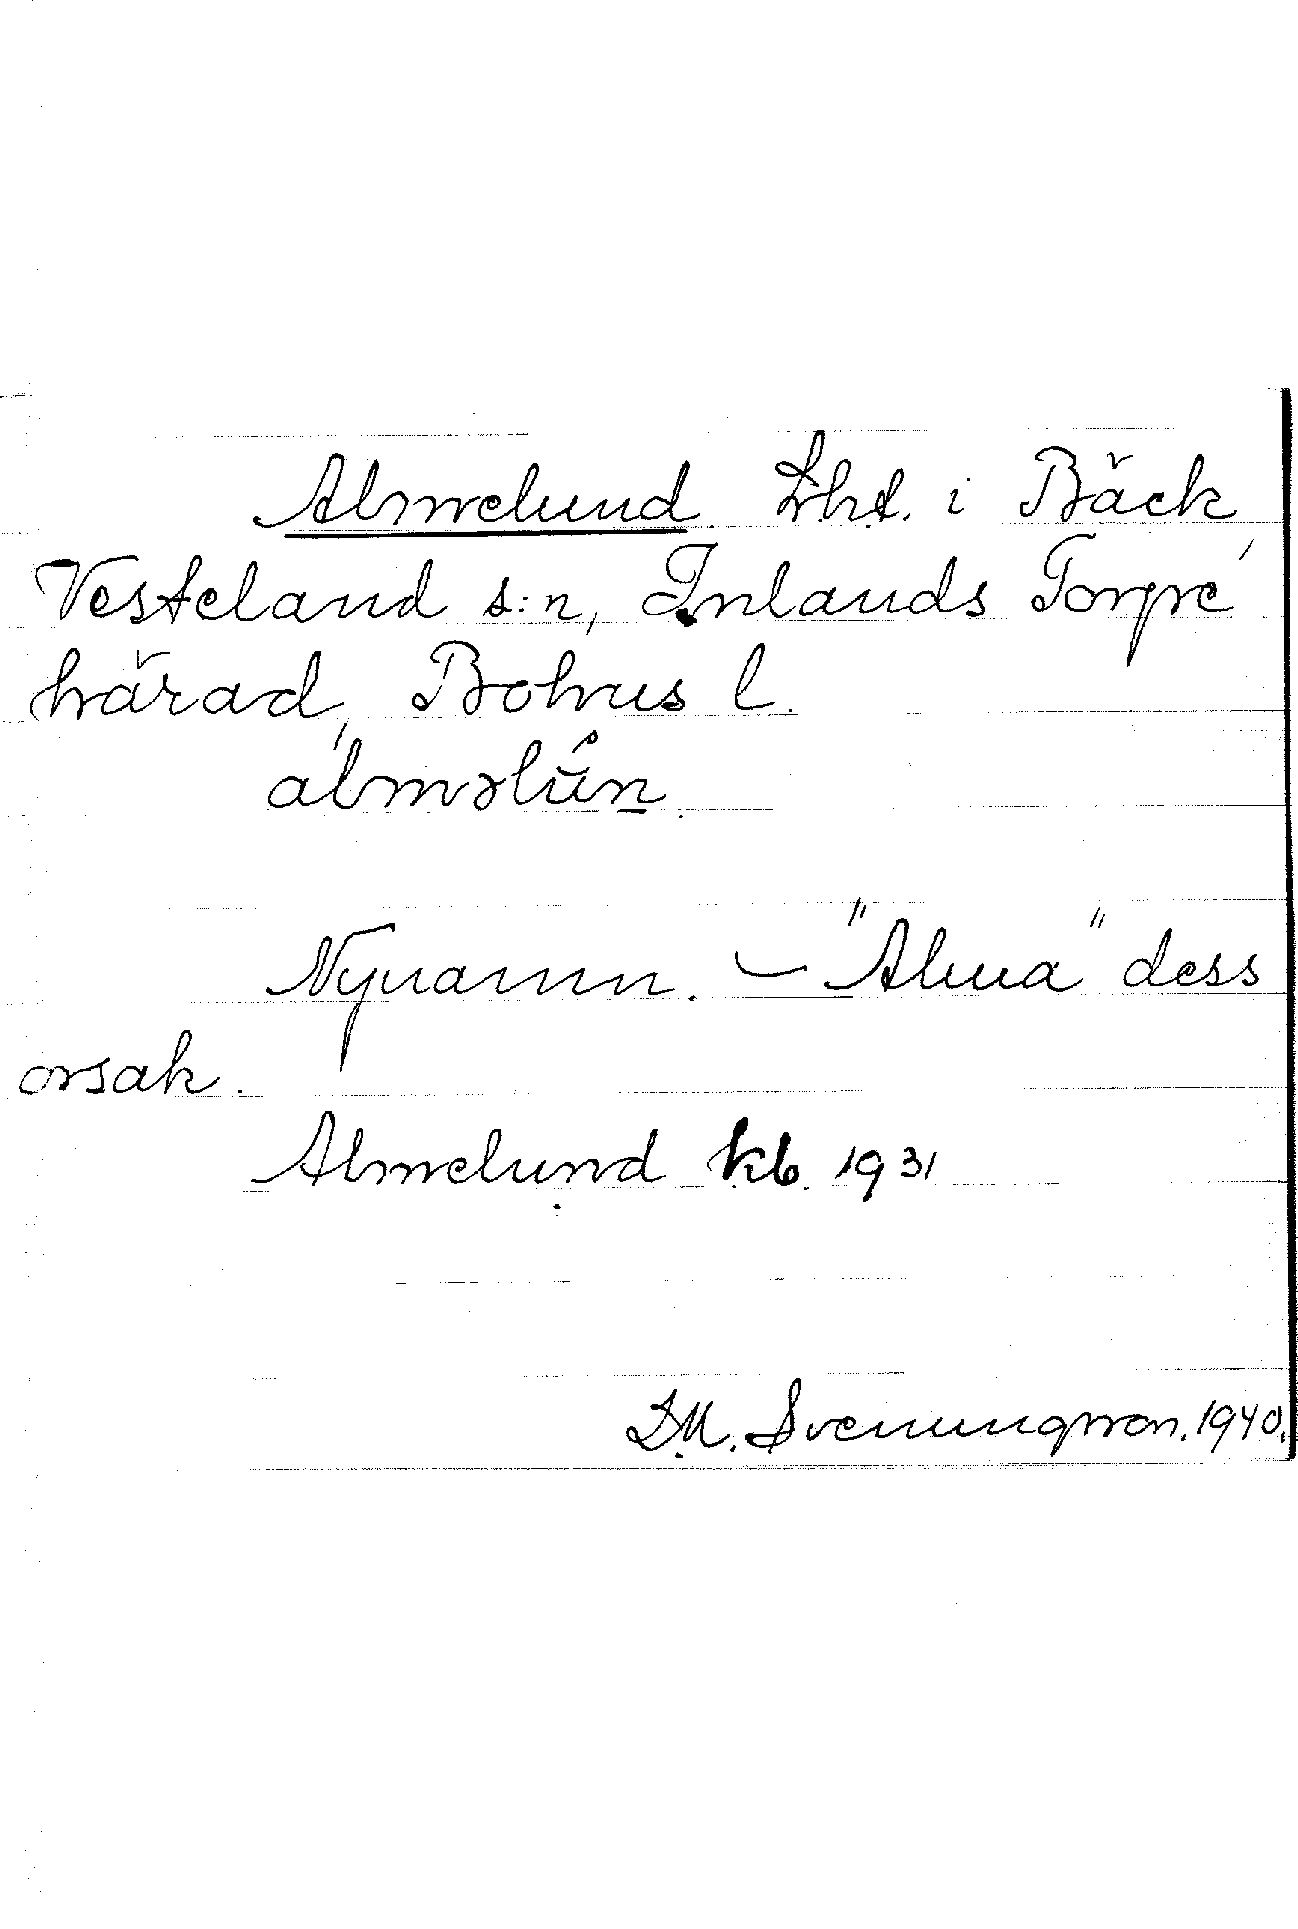 Almelund. Lht. i Bäck,
Vesteland s:n, Inlands Torpe
härad, Bohus l.
alməlun.
Nynamn. – "Alma" dess
orsak.
Almelund kb. 1931
D.M. Svenungsson. 1940.